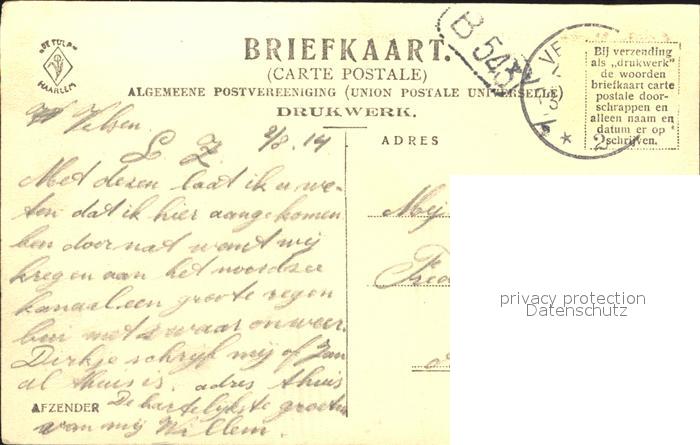 "DE TULP"
HAARLEM
BRIEFKAART.
(CARTE POSTALE)
ALGEMEENE POSTVEREENIGING (UNION POSTALE UNIVERSELLE)
DRUKWERK.
B 543
Bij verzending
als „drukwerk"
de woorden
briefkaart carte
postale door-
schrappen en
alleen naam en
datum er op
schrijven.
ADRES
Velsen. 2/8. 14
L Z.
Met dezen laat ik u we-
ten dat ik hier aangekomen
ben door nat want wij
kregen aan het noordzee
kanaal een groote regen
bui met zwaar onweer.
Dirkje schrijf mij of Jan
al thuis is. adres thuis
AFZENDER De hartelijkste groeten
van mij Willem.
Mej
privacy protection
Datenschutz